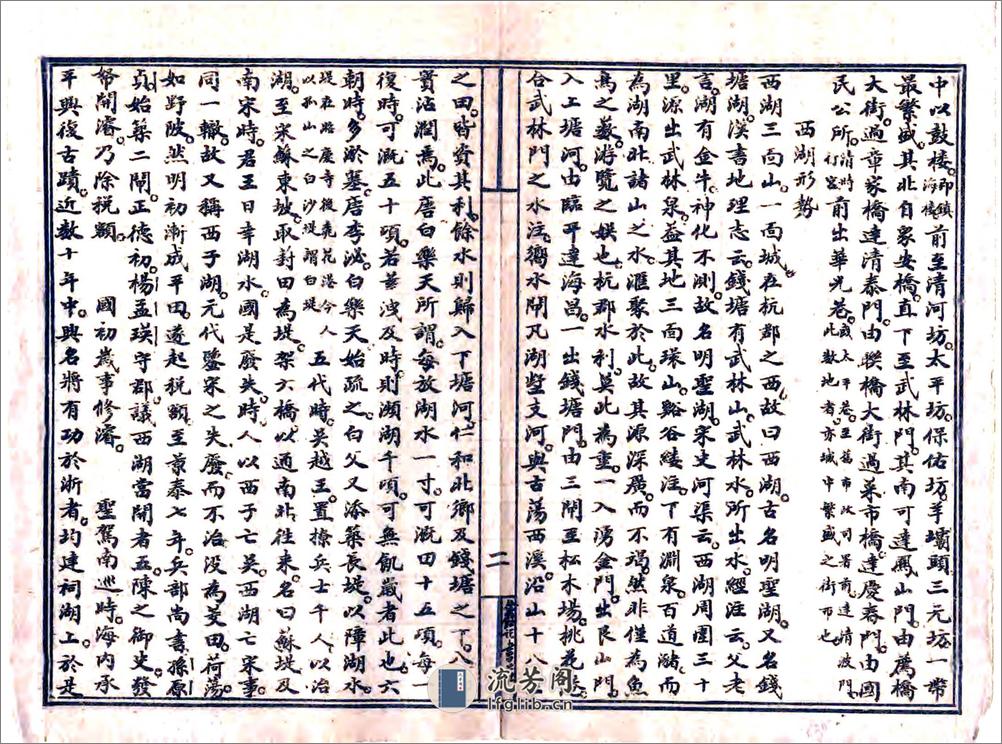 中以鼓楼即鎮海樓前至清河坊太平坊保佑坊羊壩頭三元坊一帶
最繁盛其北自衆安橋直下至武林門其南可達鳳山門由薦橋
大街過章家橋達清泰門由聯橋大街過菜市橋達慶春門由國
民公所清時行宮前出華光巷或太平巷至舊市政司署前達清波門此数地者亦城中繁盛之街市也
西湖形勢
西湖三面山一面城在杭郡之西故曰西湖古名明聖湖又名錢
塘湖漢書地理志云錢塘有武林山武林水所出水經注云父老
言湖有金牛神化不測故名明聖湖宋史河渠云西湖周圍三十
里源出武林泉蓋其地三面環山谿谷縷注下有淵泉百道瀦而
為湖南北諸山之水滙聚於此故其源深廣而不竭然非僅為魚
鳥之藪游覽之娱也杭郡水利莫此為重一入湧金門出艮山門
入上塘河由臨平達海昌一出錢塘門由三閘至松木場桃花港
合武林門之水注嚮水閘凡湖墅支河與古蕩西溪沿山十八
二
之田皆資其利餘水則歸入下塘河仁和北鄉及錢塘之下八
實沾潤焉此唐白樂天所謂每放湖水一寸可溉田十五頃每一
復時可溉五十頃若蓄洩及時則瀕湖千頃可無飢歲者此也六
朝時多淤墓唐李泌白樂天始疏之白父又添築長堤以障湖水
堤在昭慶寺後桃花港今人以孤山之白沙堤謂白堤五代時吳越王置撩兵士千人以治
湖至宋蘇東坡取葑田為堤架六橋以通南北往来名曰蘇堤及
南宋時君王日幸湖水國是廢失時人以西子亡吳西湖亡宋事
同一轍故又稱西子湖元代鑒宋之失廢而不治没為茭田荷蕩
如野陂然明初漸成平田遂起税額至景泰七年兵部尚書孫原
貞始築二閘正德初楊孟瑛守郡議西湖當開者五陳之御史發
帑開濬乃除税額 國初歲事修濬 聖駕南巡時海内承
平興復古蹟近数十年中興名將有功於浙者均建祠湖上於是
流芳阁
lfglib.cn